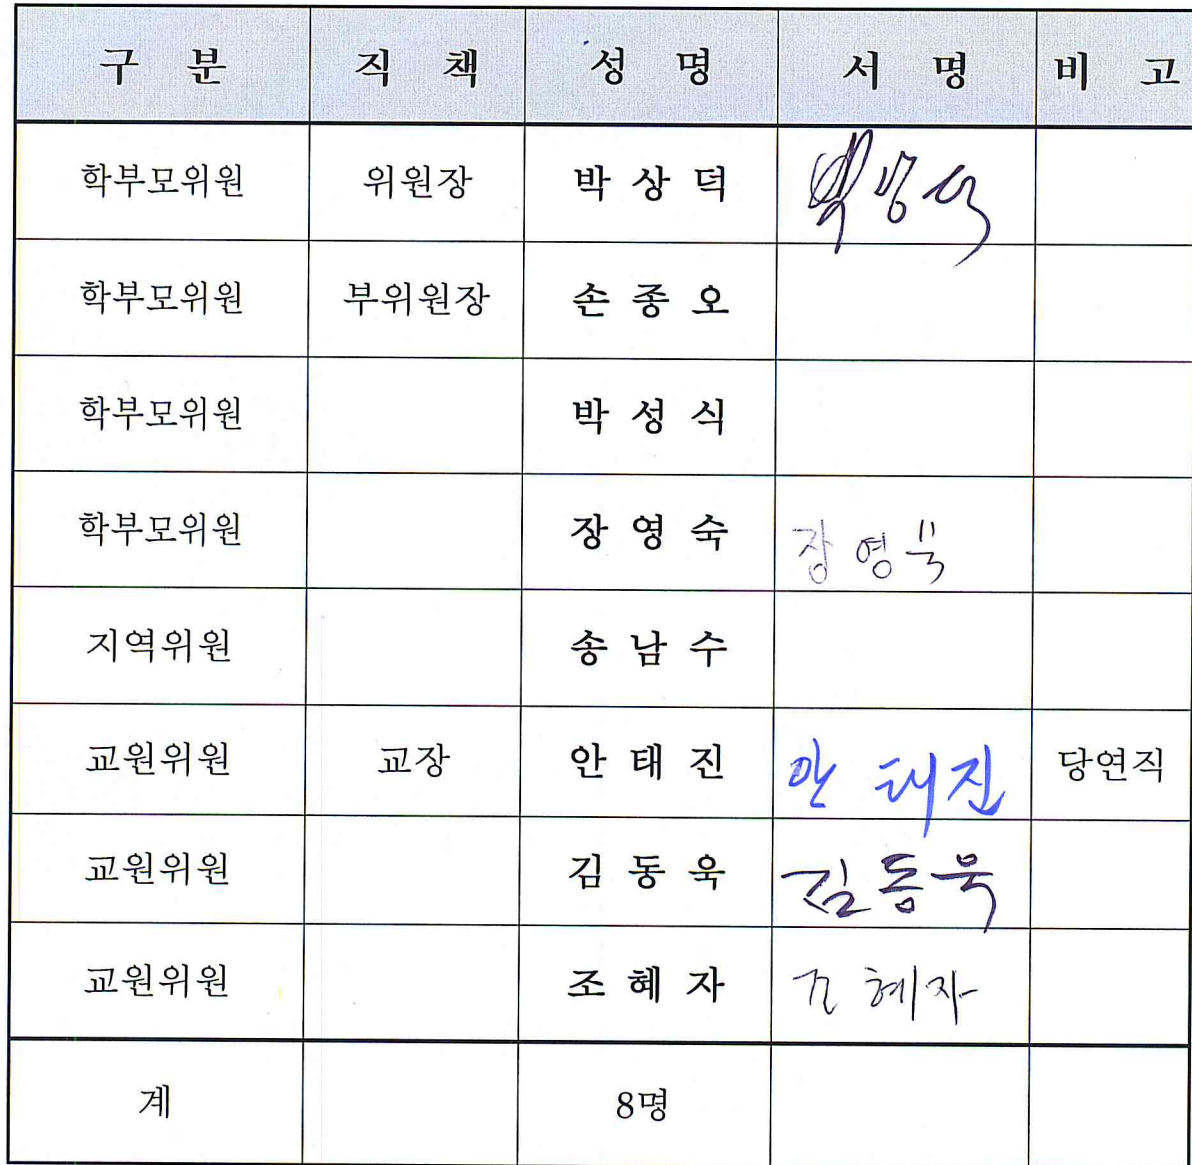 구 분 직 책 성 명 서 명 비 고
학부모위원 위원장 박 상 덕 박상덕
학부모위원 부위원장 손 종 오
학부모위원 박 성 식
학부모위원 장 영 숙 장 영 숙
지역위원 송 남 수
교원위원 교장 안 태 진 안 태진 당연직
교원위원 김 동 욱 김동욱
교원위원 조 혜 자 조 혜자
계 8명